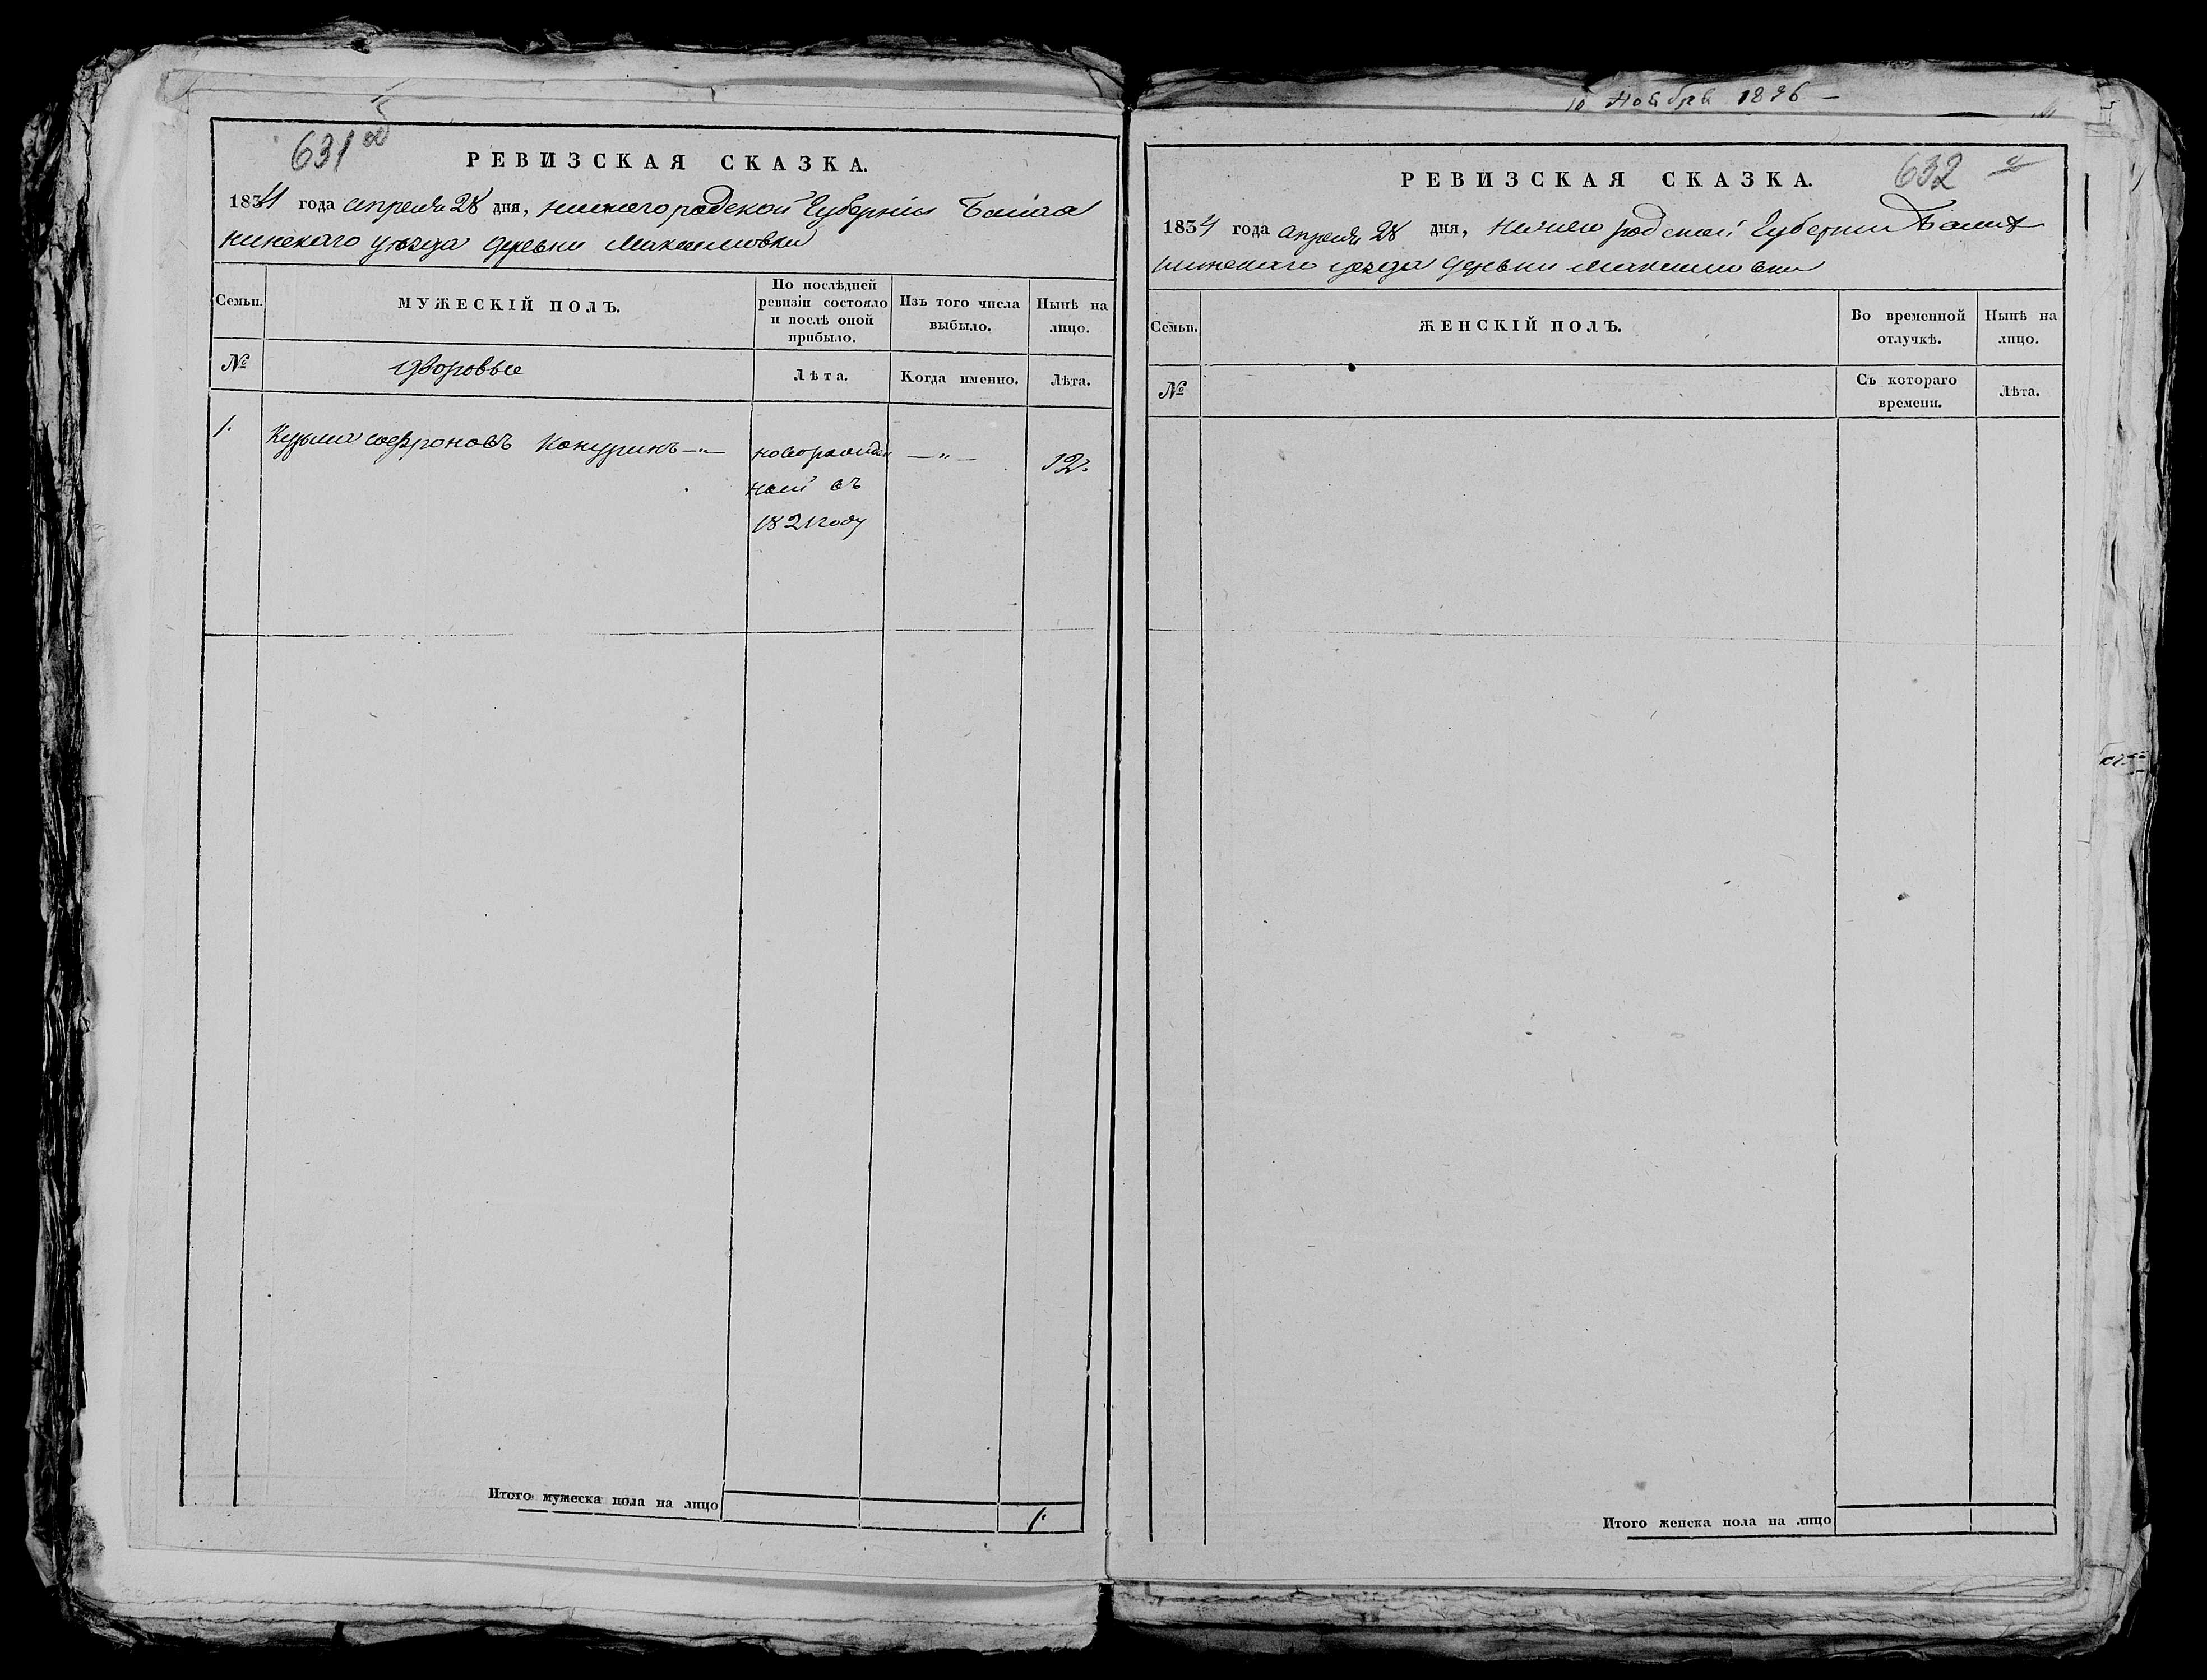 631 об
РЕВИЗСКАЯ СКАЗКА.
1834 года апреля 28 дня, нижегородской Губерніи Балах
нинскаго уѣзда деревни Максимовки
Семьи.
МУЖЕСКІЙ ПОЛЪ.
По послѣдней ревизіи состояло и послѣ оной прибыло.
Изъ того числа выбыло.
Нынѣ на лицо.
№
дворовые
Лѣта.
Когда именно.
Лѣта.
1.
Кузьма софроновъ Кокуринъ —„—
новорожден
ной въ
1821 году
—„—
12.
Итого мужеска пола на лицо
1.
10 Ноября 1836 —
632
РЕВИЗСКАЯ СКАЗКА.
1834 года апреля 28 дня, нижегородской Губернии Балах
нинскаго уезда деревни Максимовки
Семьи.
ЖЕНСКІЙ ПОЛЪ.
Во временной отлучкѣ.
Нынѣ на лицо.
№
Съ котораго времени.
Лѣта.
Итого женска пола на лицо